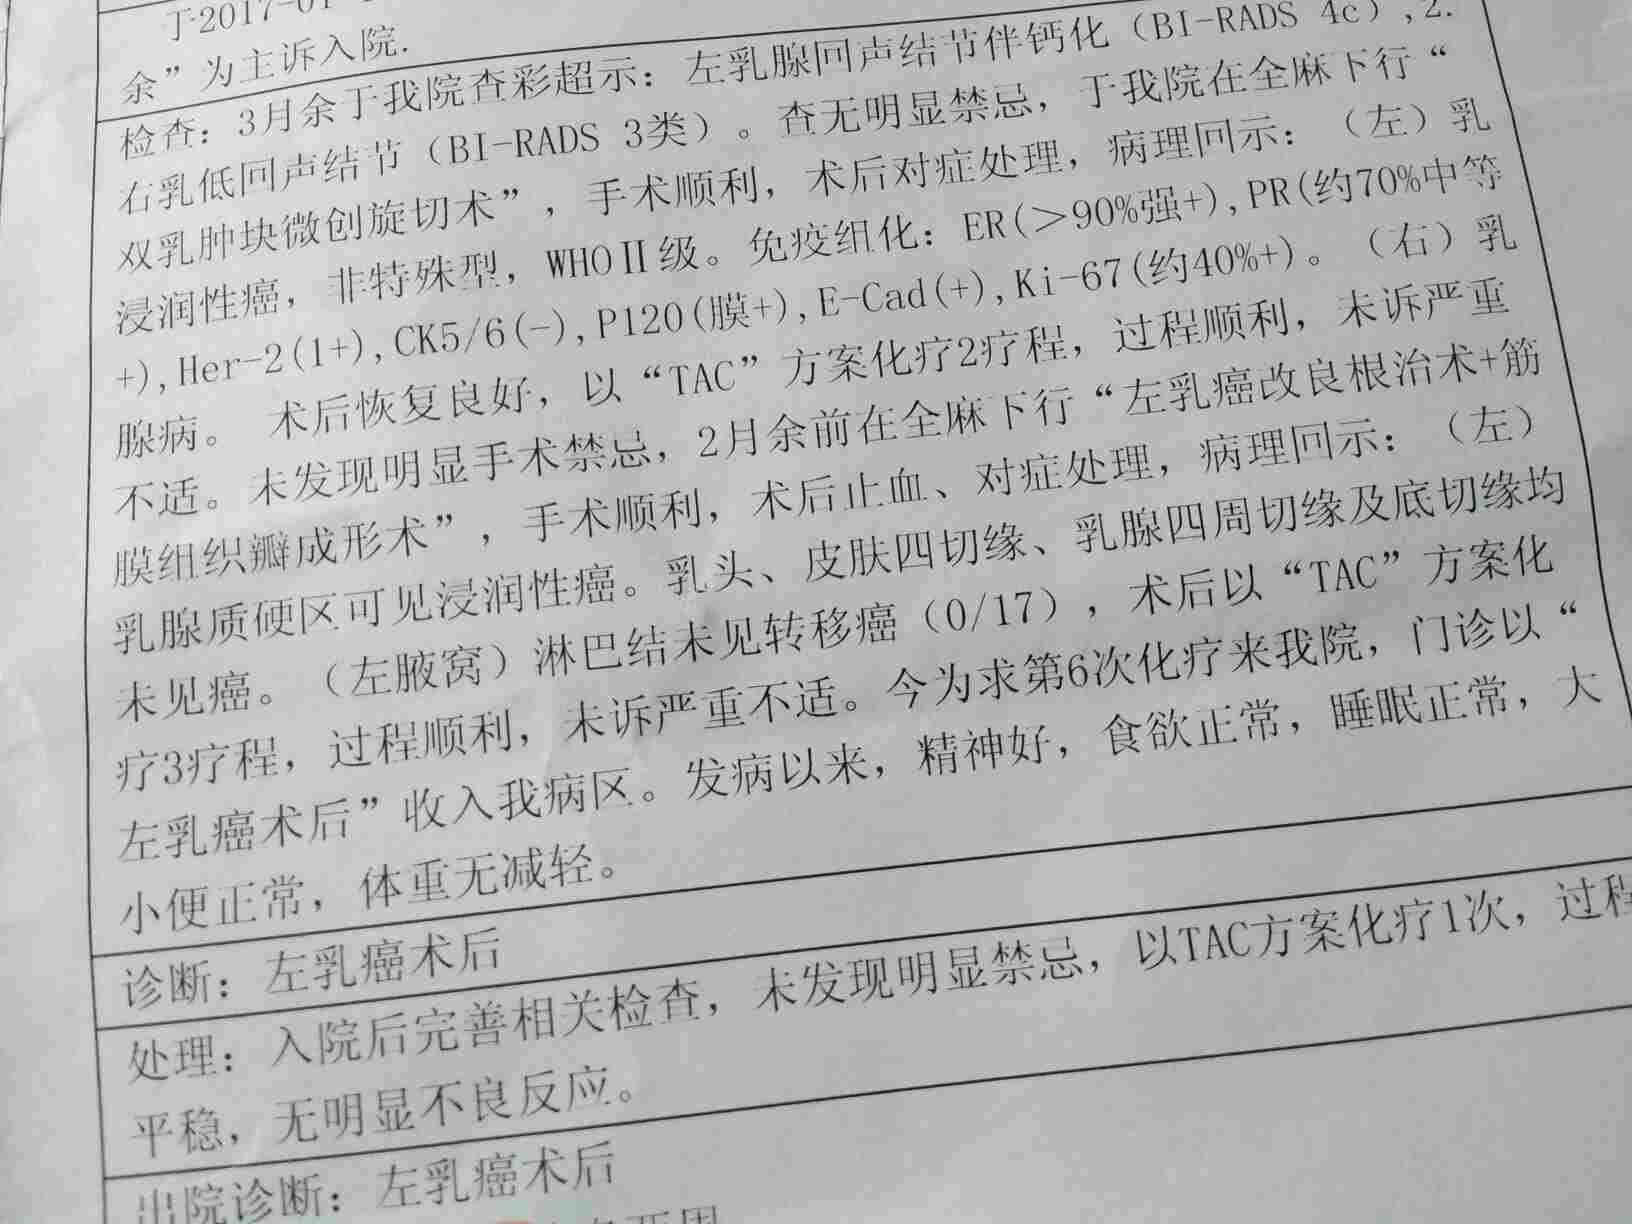 于2017-01
余”为主诉入院.
检查：3月余于我院查彩超示：左乳腺回声结节伴钙化（BI-RADS 4c）,2.
右乳低回声结节（BI-RADS 3类）。查无明显禁忌，于我院在全麻下行“
双乳肿块微创旋切术”，手术顺利，术后对症处理，病理回示：（左）乳
浸润性癌，非特殊型，WHOⅡ级。免疫组化：ER(＞90%强+),PR(约70%中等
+),Her-2(1+),CK5/6(-),P120(膜+),E-Cad(+),Ki-67(约40%+)。（右）乳
腺病。 术后恢复良好，以“TAC”方案化疗2疗程，过程顺利，未诉严重
不适。未发现明显手术禁忌，2月余前在全麻下行“左乳癌改良根治术+筋
膜组织瓣成形术”，手术顺利，术后止血、对症处理，病理回示：（左）
乳腺质硬区可见浸润性癌。乳头、皮肤四切缘、乳腺四周切缘及底切缘均
未见癌。（左腋窝）淋巴结未见转移癌（0/17），术后以“TAC”方案化
疗3疗程，过程顺利，未诉严重不适。今为求第6次化疗来我院，门诊以“
左乳癌术后”收入我病区。发病以来，精神好，食欲正常，睡眠正常，大
小便正常，体重无减轻。
诊断：左乳癌术后
处理：入院后完善相关检查，未发现明显禁忌，以TAC方案化疗1次，过程
平稳，无明显不良反应。
出院诊断：左乳癌术后